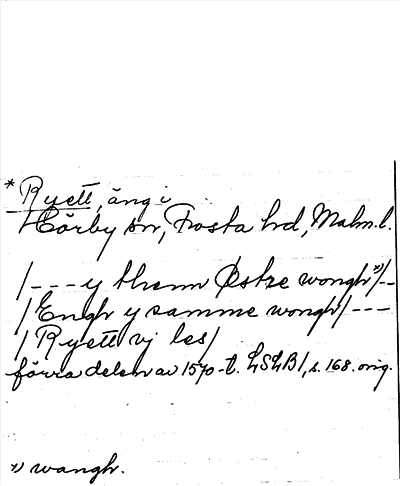 * Ryett, äng i
Hörby sn, Frosta hd, Malm. l.
/--- y thenn Østre wongh ¹⁾/--
/Engh y samme wongh/---
/Ryett vj les/
förra delen av 1570-t. LSLB1, s. 168. orig.
¹⁾ wangh.